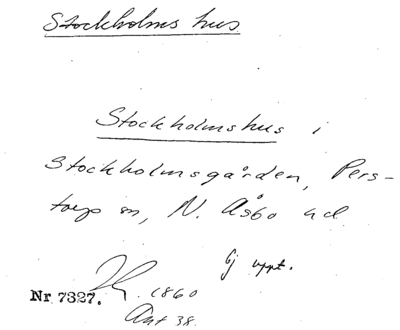 Stockholms hus
Stockholmshus i
Stockholmsgården, Pers-
torp sn, N. Åsbo hd.
Ej uppt.
Nr 7327. 1860
Ant 38.